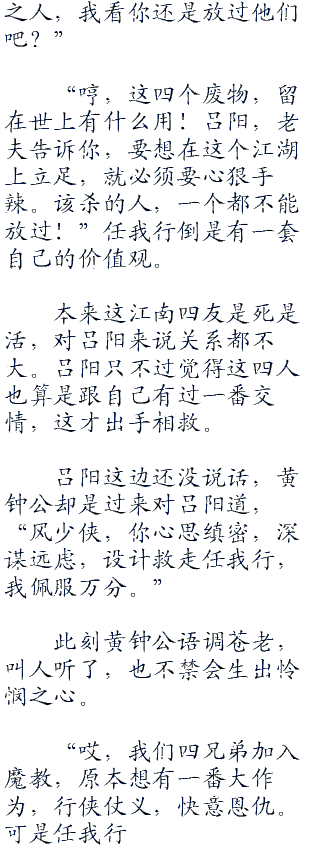 之人，我看你还是放过他们
吧？”
“哼，这四个废物，留
在世上有什么用！吕阳，老
夫告诉你，要想在这个江湖
上立足，就必须要心狠手
辣。该杀的人，一个都不能
放过！”任我行倒是有一套
自己的价值观。
本来这江南四友是死是
活，对吕阳来说关系都不
大。吕阳只不过觉得这四人
也算是跟自己有过一番交
情，这才出手相救。
吕阳这边还没说话，黄
钟公却是过来对吕阳道，
“风少侠，你心思缜密，深
谋远虑，设计救走任我行，
我佩服万分。”
此刻黄钟公语调苍老，
叫人听了，也不禁会生出怜
悯之心。
“哎，我们四兄弟加入
魔教，原本想有一番大作
为，行侠仗义，快意恩仇。
可是任我行